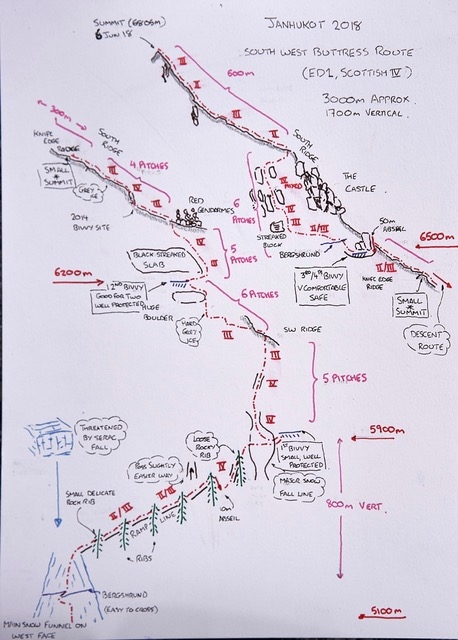 SUMMIT (6805M)
6 JUN 18
JANHUKOT 2018
SOUTH WEST BUTTRESS ROUTE
(ED1, SCOTTISH IV)
3000M APPROX.
1700M VERTICAL.
II
600M
II
III
III
300M
KNIFE
EDGE
RIDGE
SOUTH
RIDGE
SMALL
SUMMIT
GREY
ICE
4 PITCHES
III
IV
III
2014
BIVVY SITE
RED
GENDARMES
SOUTH
RIDGE
6
PITCHES
IV
MIXED
IV
III
II/III
THE
CASTLE.
STREAKED
BLOCK
BERGSHRUND
50M
ABSEIL
6500M
3RD/4TH BIVVY
V COMFORTABLE
SAFE
KNIFE EDGE
RIDGE
SMALL
SUMMIT
DESCENT
ROUTE
IV
III
5
PITCHES
BLACK STREAKED
SLAB
6200M
2ND BIVVY
GOOD FOR TWO
WELL PROTECTED
HUGE
BOULDER
6 PITCHES
IV
HARD
GREY
ICE
III
SW RIDGE
III
IV
IV
5 PITCHES
5900M
1ST BIVVY
SMALL, WELL
PROTECTED
MAJOR SNOW
FALL LINE
THREATENED
BY SERAC
FALL
LOOSE
ROCKY
RIB
PASS SLIGHTLY
EASIER WAY
IV
II/III
III
10M
ABSEIL
800M VERT.
SMALL DELICATE
ROCK RIB
II/III
RAMP LINE
RIBS
BERGSHRUND
(EASY TO CROSS)
MAIN SNOW FUNNEL ON
WEST FACE
5100M